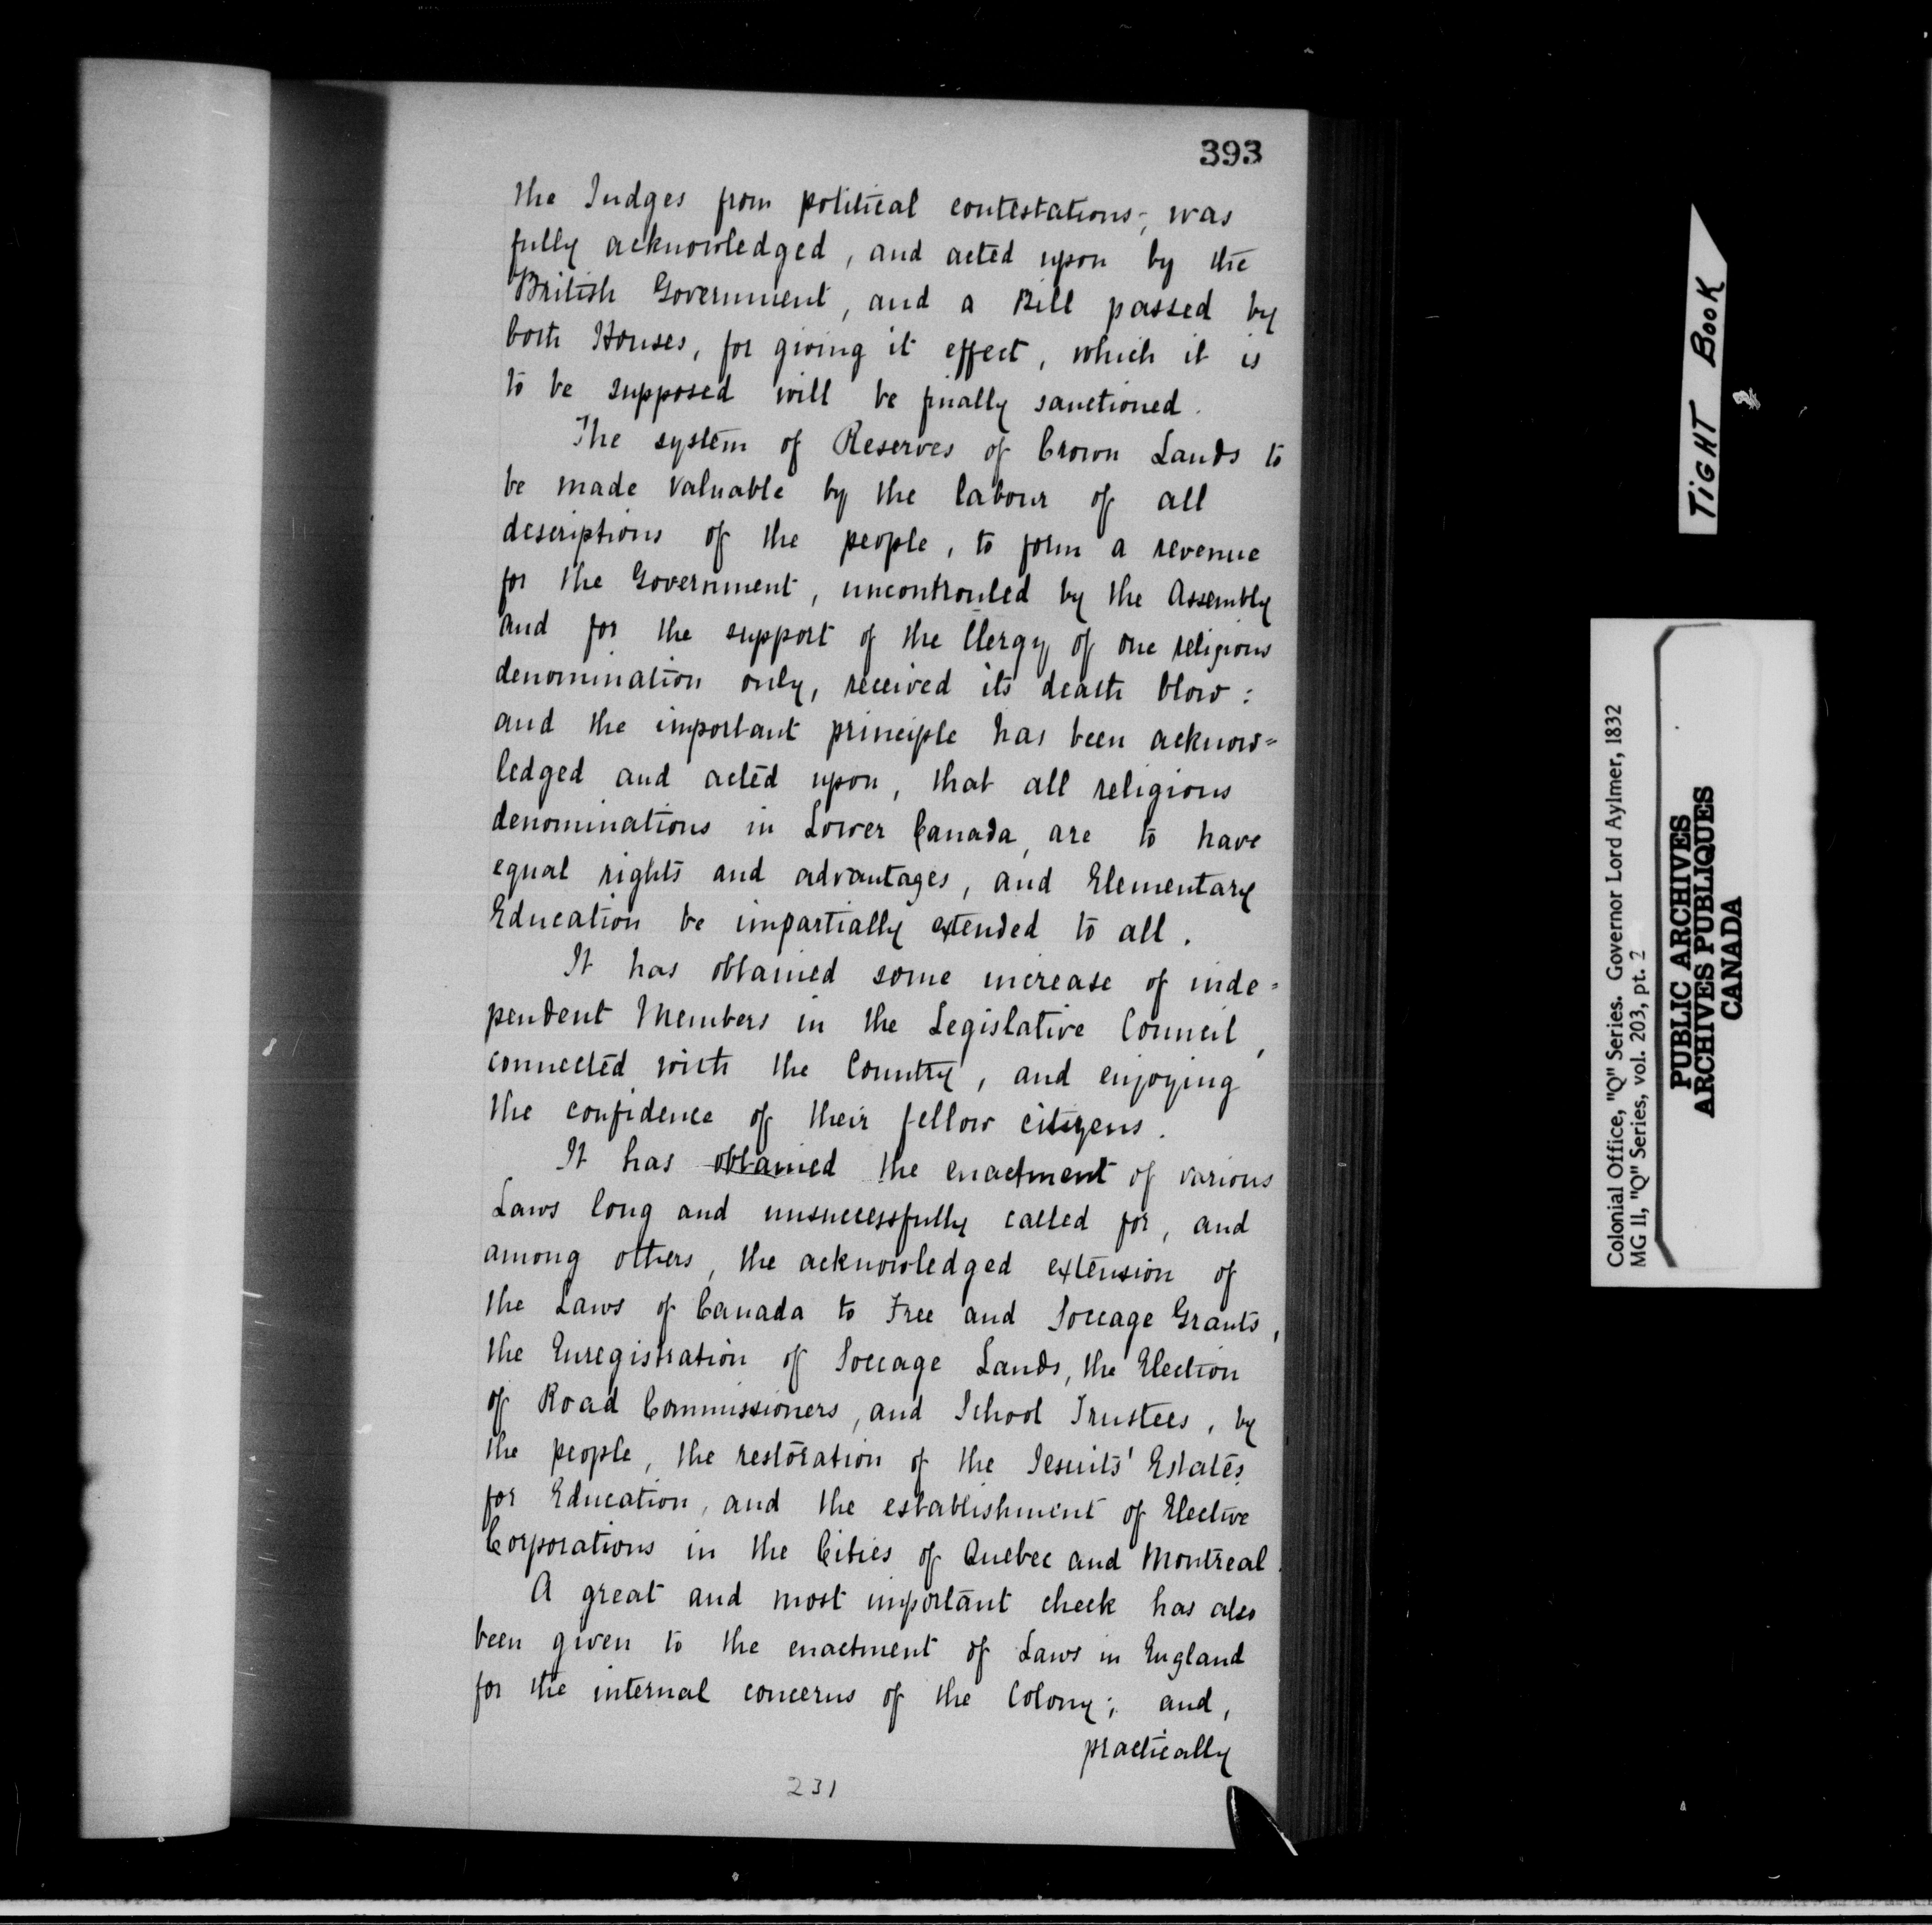 393
the Judges from political contestations, was
fully acknowledged, and acted upon by the
British Government, and a Bill passed by
both Houses, for giving it effect, which it is
to be supposed will be finally sanctioned.
The system of Reserves of Crown Lands to
be made valuable by the labour of all
descriptions of the people, to form a revenue
for the Government, uncontrouled by the Assembly
and for the support of the Clergy of one religious
denomination only, received its death blow:
and the important principle has been acknow=
ledged and acted upon, that all religious
denominations in Lower Canada, are to have
equal rights and advantages, and Elementary
Education be impartially extended to all.
It has obtained some increase of inde=
pendent Members in the Legislative Council,
connected with the Country, and enjoying
the confidence of their fellow citizens.
It has obtained the enactment of various
Laws long and unsuccessfully called for, and
among others, the acknowledged extension of
the Laws of Canada to Free and Soccage Grants,
the Enregistration of Soccage Lands, the Election
of Road Commissioners, and School Trustees, by
the people, the restoration of the Jesuits' Estates
for Education, and the establishment of Elective
Corporations in the Cities of Quebec and Montreal.
A great and most important check has also
been given to the enactment of Laws in England
for the internal concerns of the Colony; and,
practically
231
TIGHT BOOK
Colonial Office, "Q" Series. Governor Lord Aylmer, 1832
MG II, "Q" Series, vol. 203, pt. 2
PUBLIC ARCHIVES
ARCHIVES PUBLIQUES
CANADA